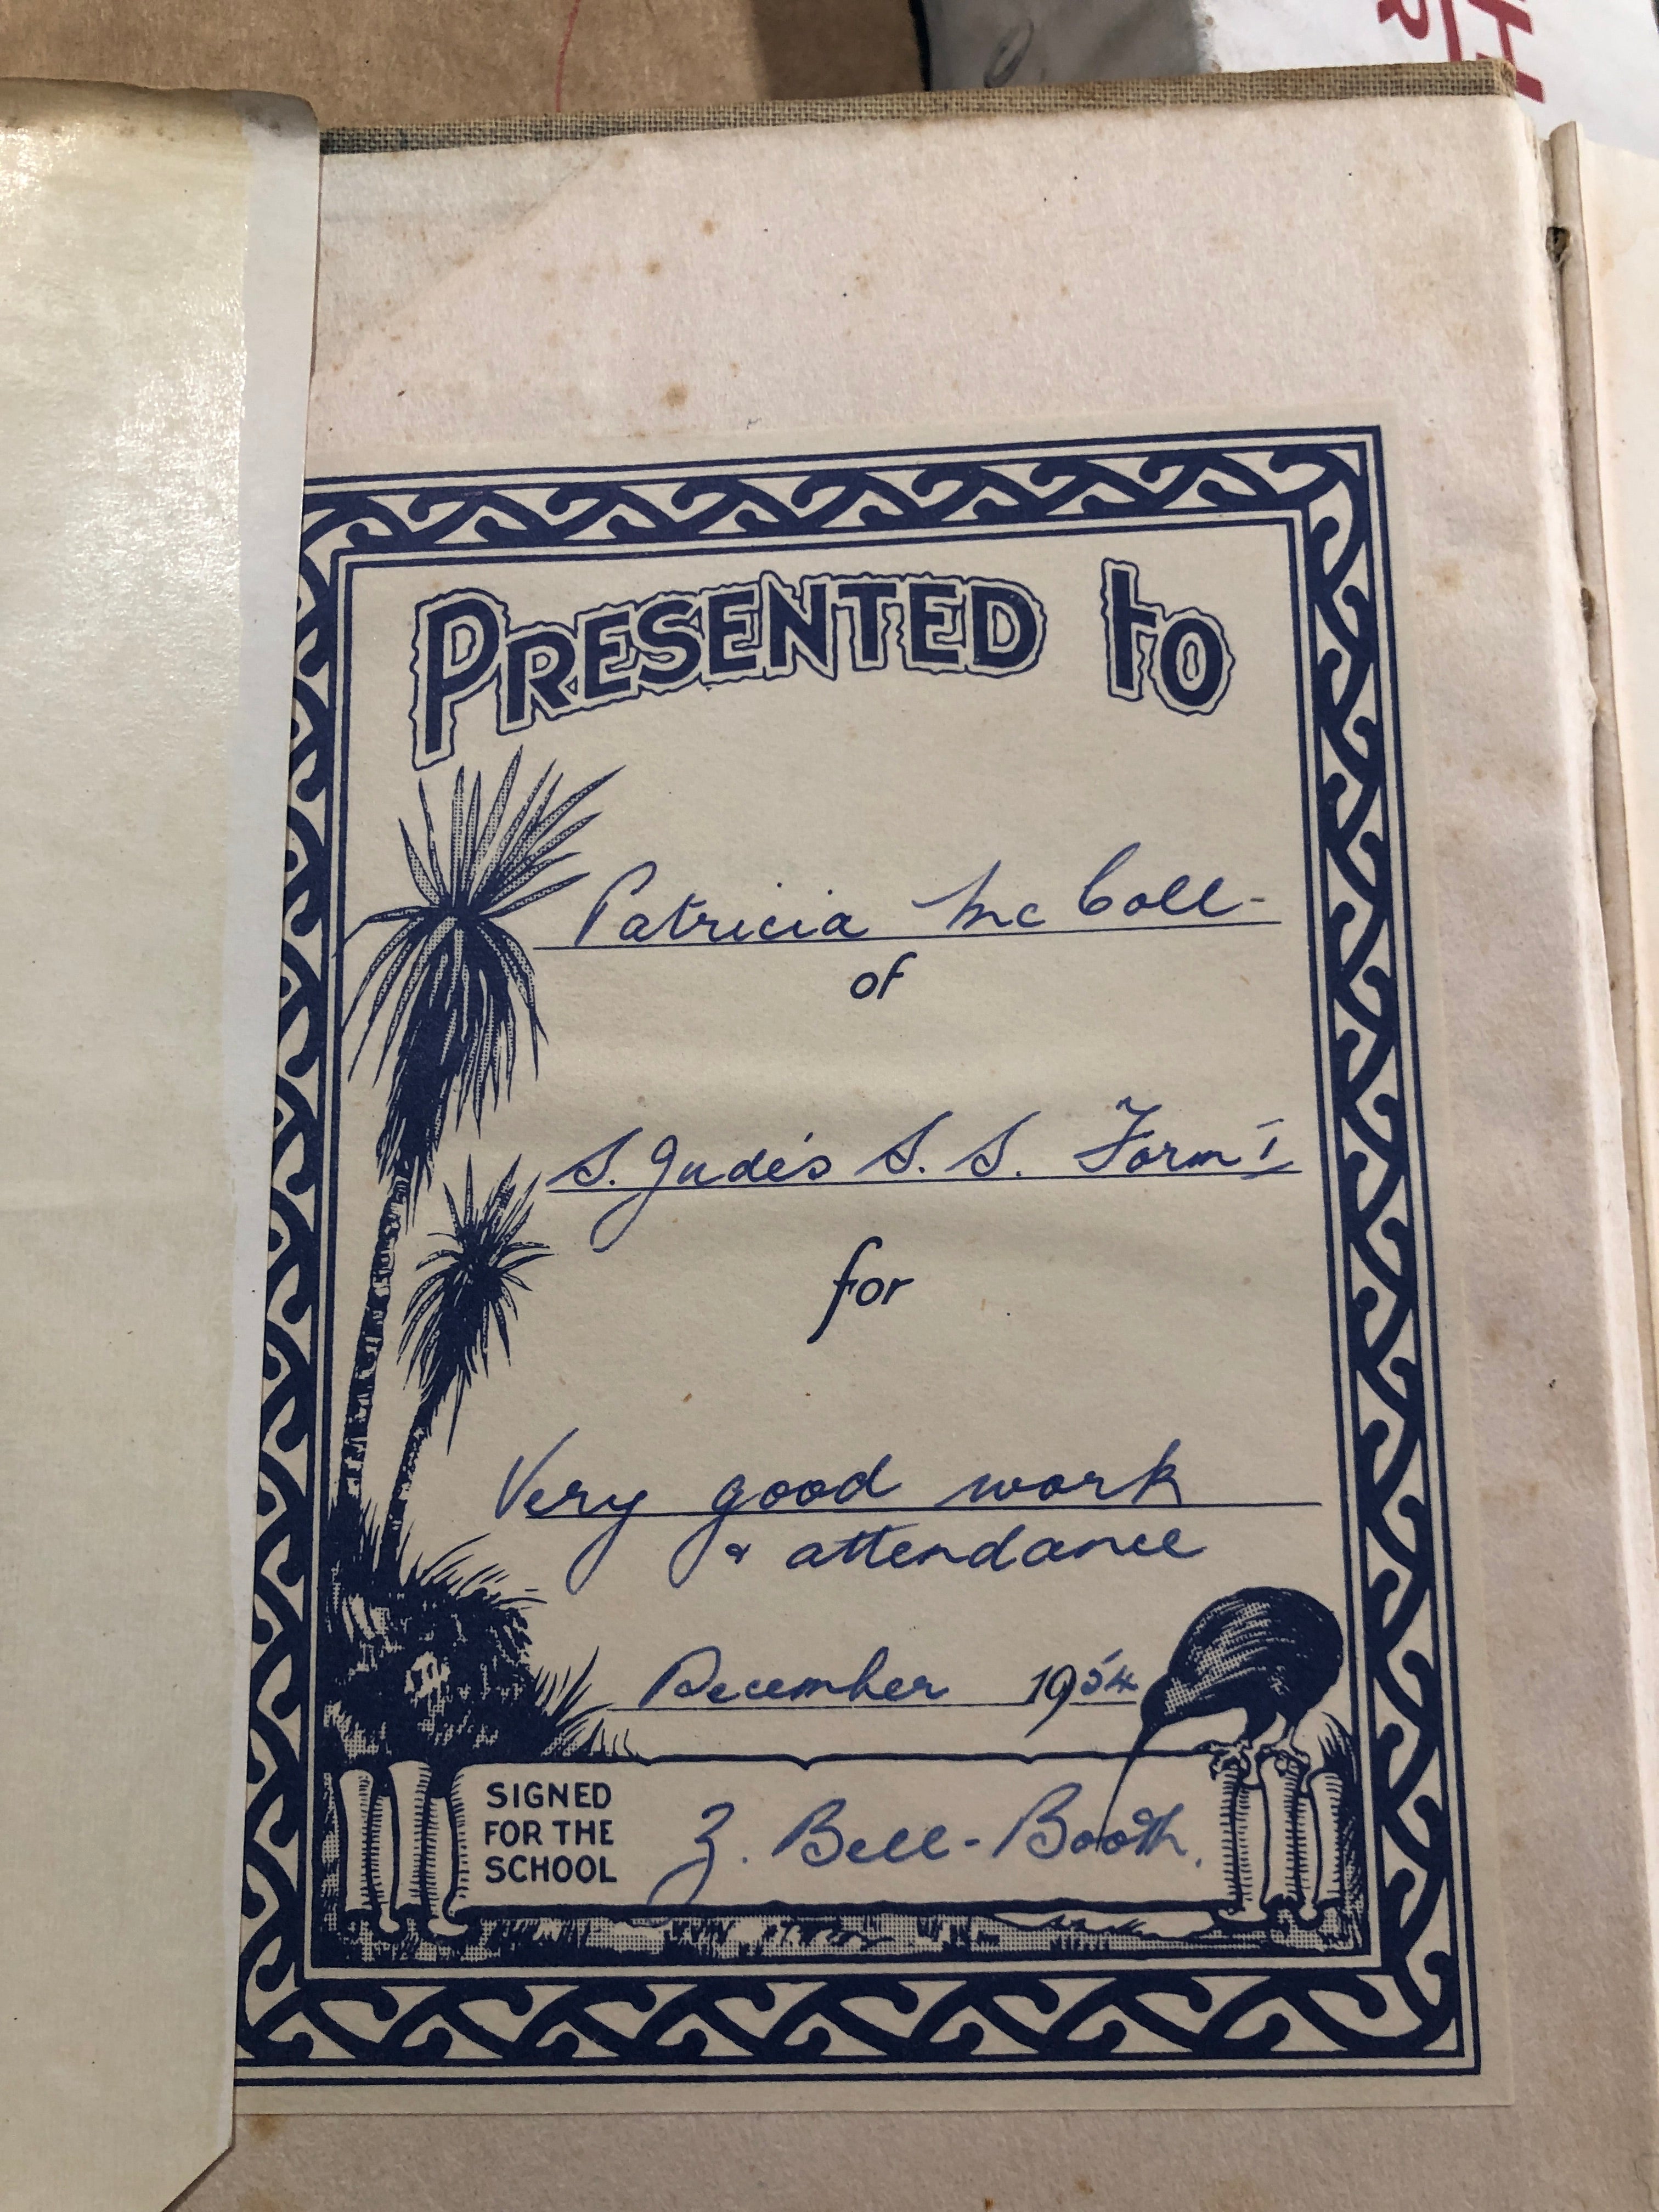 PRESENTED to
Patricia McColl-
of
S. Jude's S. S. Form I
for
Very good work
& attendance
December 1954
SIGNED
FOR THE
SCHOOL
Z. Bell-Booth.